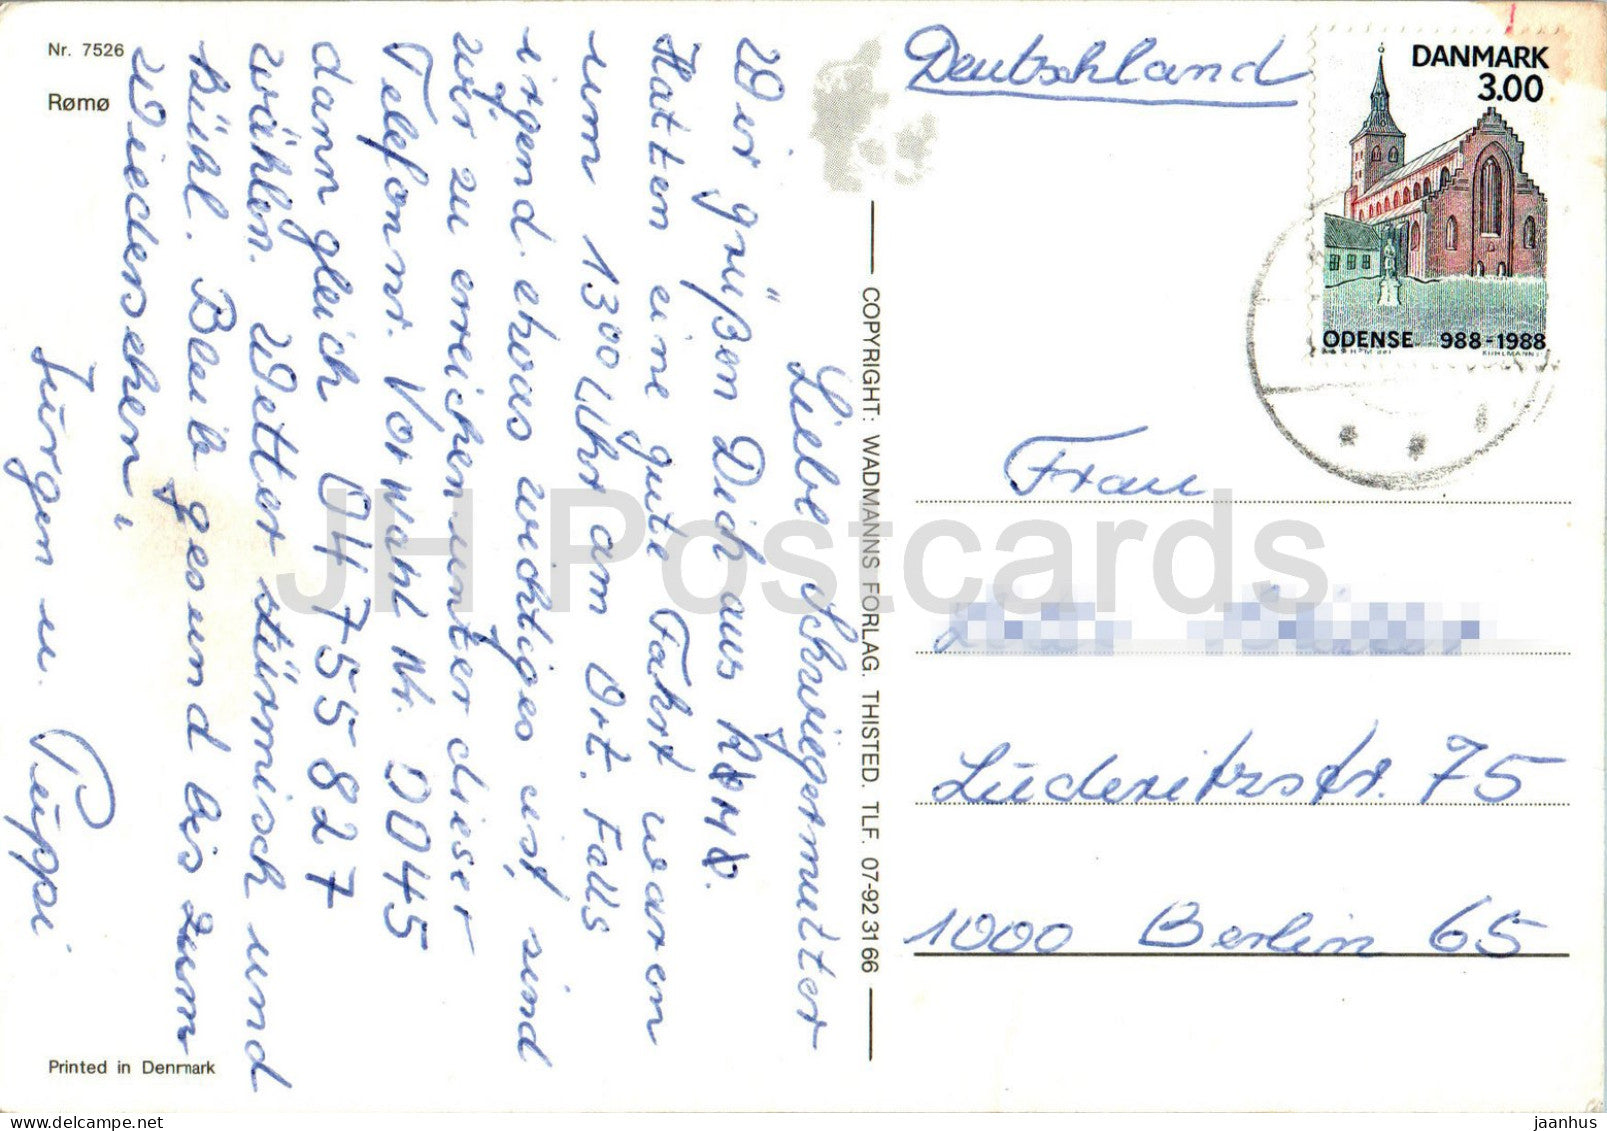 Nr. 7526
Rømø
Liebe Schwiegermutter
Wir grüßen Dich aus Rømø.
Hatten eine gute Fahrt waren
um 13⁰⁰ Uhr am Ort. Falls
irgend etwas wichtiges ist, sind
wir zu erreichen unter dieser
Telefonnr. Vorwahl Nr. 0045
dann gleich 04 755827
wählen. Wetter stürmisch und
kühl. Bleib gesund bis zum
Wiedersehen,
Jürgen u. Püppi
Printed in Denmark
COPYRIGHT: WADMANNS FORLAG. THISTED. TLF. 07-92 31 66
Deutschland
DANMARK
3.00
ODENSE 988-1988
Frau
Lüderitzstr. 75
1000 Berlin 65
JH Postcards
jaanhus